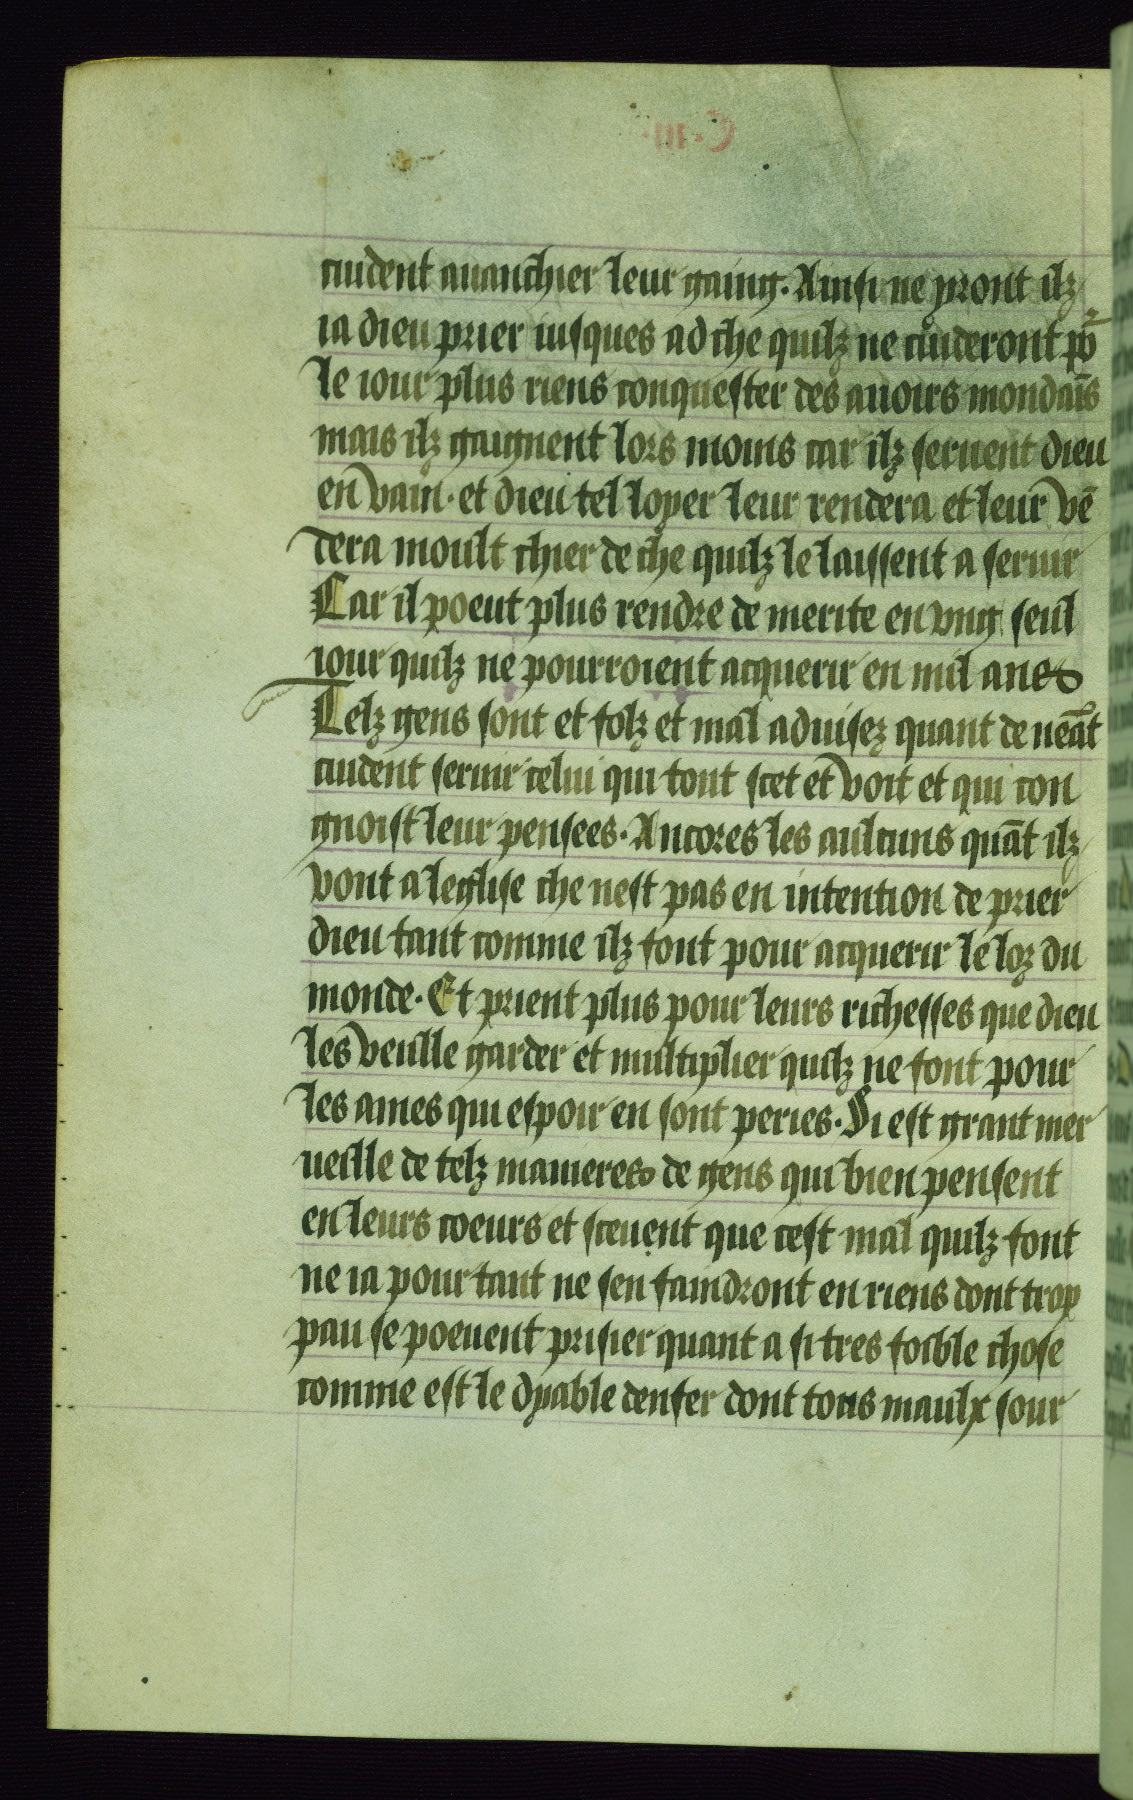 cuident auanchier leur gaing. Ainsi ne yront ilz
ia dieu prier iusques ad che quilz ne cuideront po᷑
le iour plus riens conquester des auoirs mondaīs
mais ilz gaignent lors moins car ilz seruent dieu
en vain. et dieu tel loyer leur rendera et leur vē
dera moult chier de che quilz le laissent a seruir
Car il poeut plus rendre de merite en vng seul
iour quilz ne pourroient acquerir en mil ans
Telz gens sont et folz et mal aduisez quant de neāt
cuident seruir celui qui tout scet et voit et qui con
gnoist leur pensees. Ancores les aulcuns quāt ilz
vont a leglise che nest pas en intention de prier
dieu tant comme ilz font pour acquerir le loz du
monde. Et prient plus pour leurs richesses que dieu
les veulle garder et multiplier quilz ne font pour
les ames qui espoir en sont peries. Si est grant mer
ueille de telz manieres de gens qui bien pensent
en leurs coeurs et sceuent que cest mal quilz font
ne ia pourtant ne sen faindront en riens dont trop
pau se poeuent prisier quant a si tres foible chose
comme est le dyable denfer dont tous maulx sour